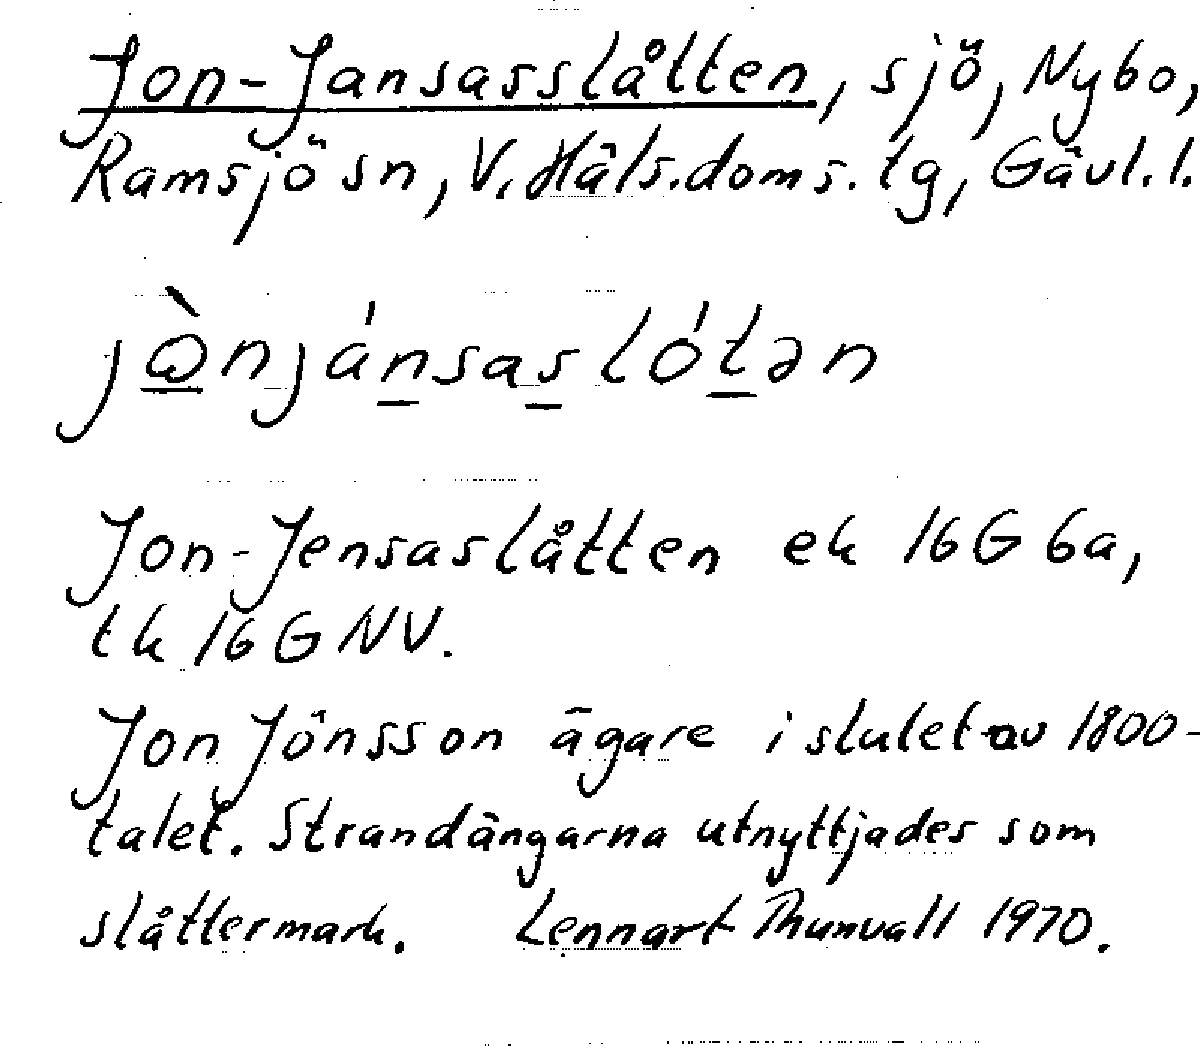 Jon-Jansasslåtten, sjö, Nybo,
Ramsjö sn, V. Häls. doms. tg, Gävl. l.
jὼnjánsaslótən
Jon-Jensaslåtten ek 16G 6a,
tk 16 G NV.
Jon Jönsson ägare i slutet av 1800-
talet. Strandängarna utnyttjades som
slåttermark. Lennart Thunvall 1970.